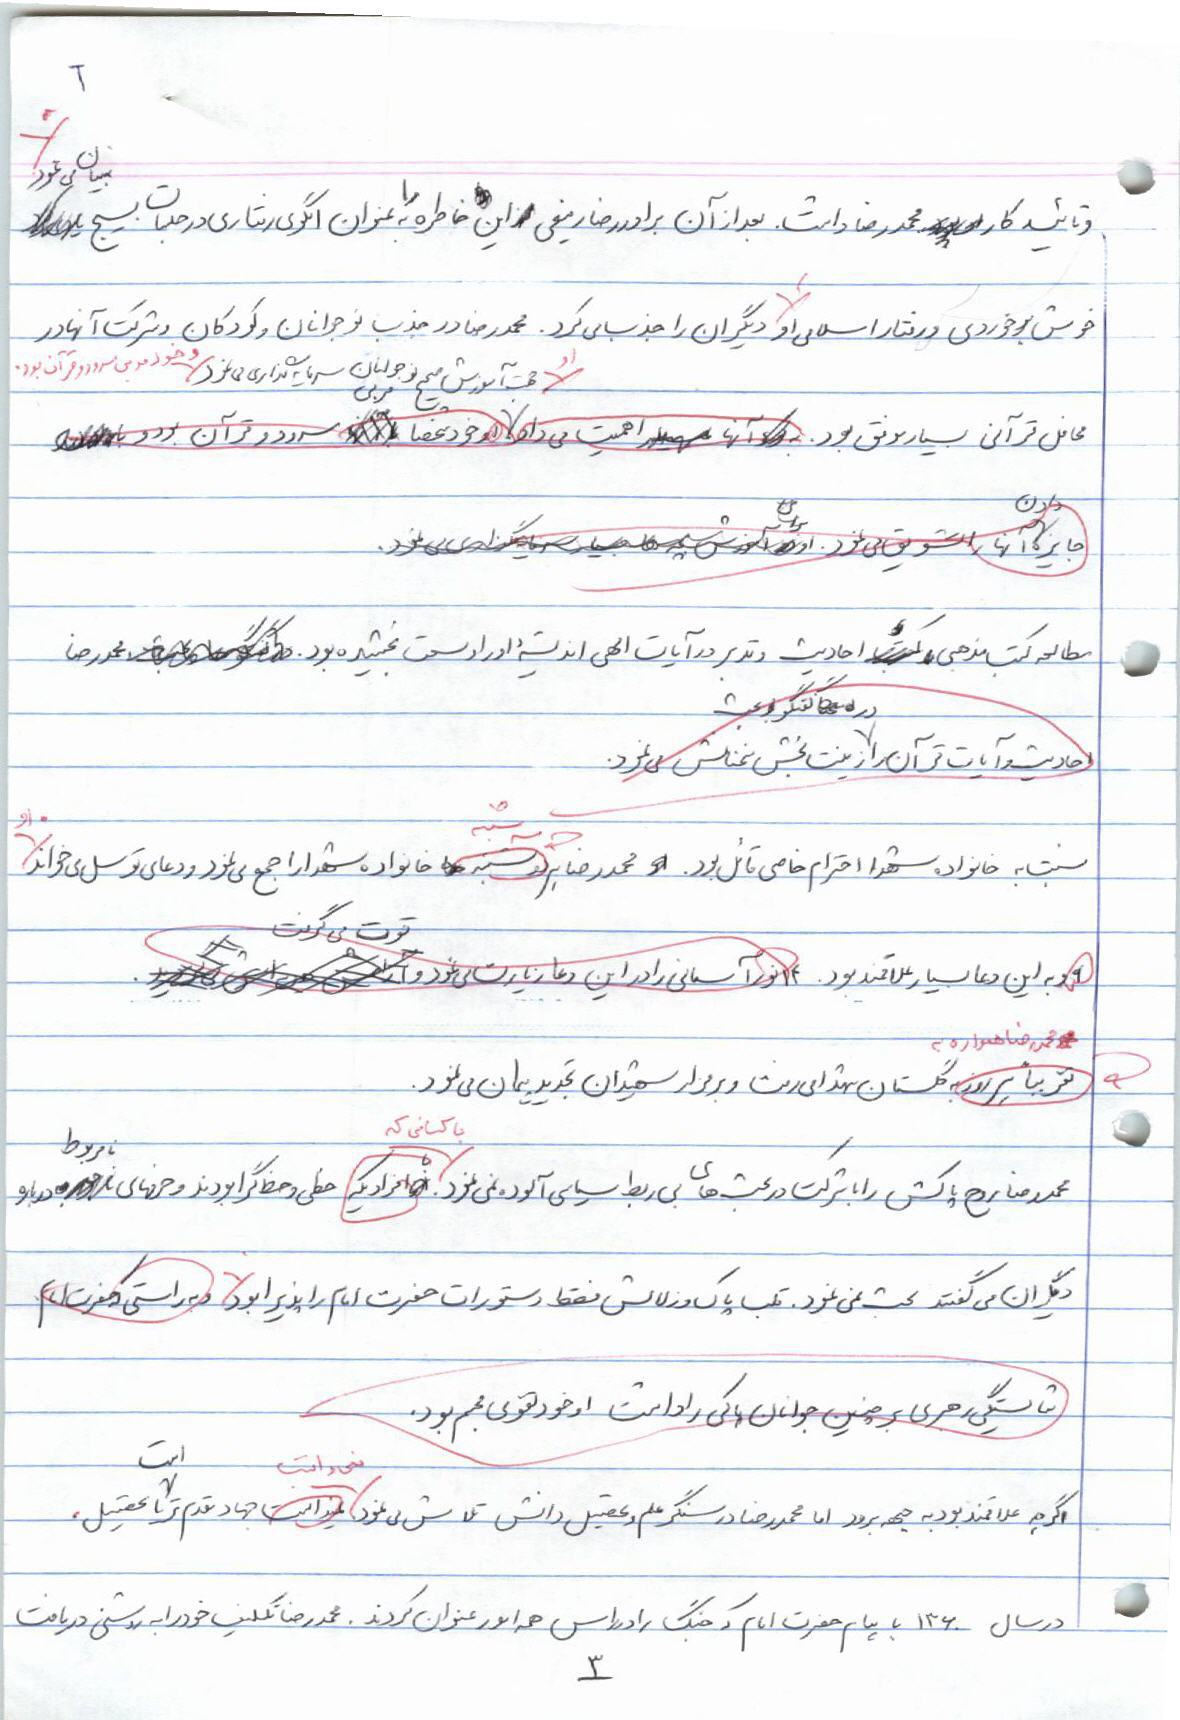 ۲
بیان می نمود
و تائید کار محمدرضا داشت. بعد از آن برادر رضا رفیعی این خاطره را به عنوان الگوی رفتاری در جلسات بسیج
خوش برخوردی و رفتار اسلامی او دیگران را جذب می کرد. محمدرضا در جذب نوجوانان و کودکان و شرکت آنها در
او جهت آموزش صحیح نوجوانان سرمایه گذاری می نمود و خود مربی سرود و قرآن بود.
مربی
محافل قرآنی بسیار موفق بود. به آنها اهمیت می داد او خود شخصا سرود و قرآن بود و با
دادن
برای
جایزه آنها را تشویق می نمود. او آموزش بچه ها بسیار سرمایه گذاری می نمود.
مطالعه کتب مذهبی و احادیث و تدبر در آیات الهی اندیشه او را وسعت بخشیده بود. محمدرضا
در گفتگو و بحث
احادیث و آیات قرآن را زینت بخش سخنانش می نمود.
شنبه
او
نسبت به خانواده شهدا احترام خاصی قائل بود. محمدرضا هر شنبه خانواده شهدا را جمع می نمود و دعای توسل می خواند
قوت می گرفت
و به این دعا بسیار علاقمند بود. ۱۴ نور آسمانی را در این دعا زیارت می نمود و
محمدرضا همواره به
تقریباً هر روز به گلستان شهدا می رفت و بر مزار شهیدان تجدید پیمان می نمود.
با کسانی که
نامربوط
محمدرضا روح پاکش را با شرکت در بحث های بی ربط سیاسی آلوده نمی نمود. با افرادیکه خطی و خط گرا بودند و حرفهای درباره
دیگران می گفتند بحث نمی نمود. قلب پاک و زلالش فقط دستورات حضرت امام را پذیرا بود و به راستی که حضرت امام
شایستگی رهبری بر چنین جوانان پاکی را داشت او خود تقوی مجسم بود.
است
نمی دانست
اگرچه علاقمند بود به جبهه برود اما محمدرضا در سنگر علم و تحصیل دانش تلاش می نمود میدانست جهاد مقدم تر یا تحصیل.
در سال ۱۳۶۰ با پیام حضرت امام که جنگ را در راس همه امور عنوان کردند. محمدرضا تکلیف خود را به روشنی دریافت
۳